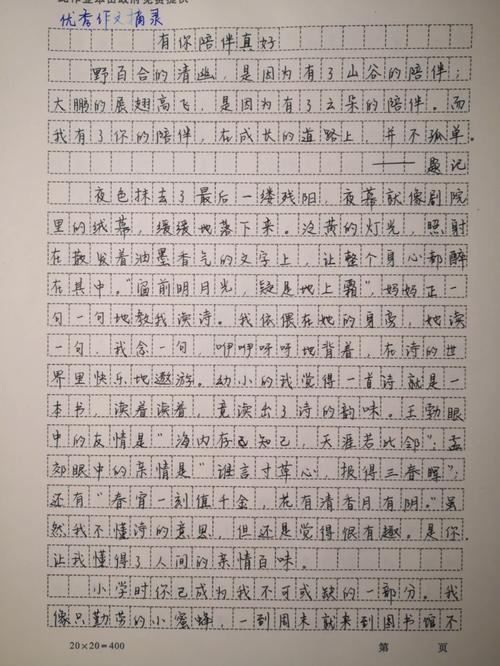 优秀作文摘录
有你陪伴真好
野百合的清幽，是因为有了山谷的陪伴；
大鹏的展翅高飞，是因为有了云朵的陪伴。而
我有了你的陪伴，在成长的道路上，并不孤单。
——题记
夜色抹去了最后一缕残阳，夜幕就像剧院
里的绒幕，缓缓地落下来。冷黄的灯光，照射
在散发着油墨香气的文字上，让整个身心都醉
在其中。“窗前明月光，疑是地上霜”，妈妈正一
句一句地教我读诗。我依偎在她的身旁，她读
一句，我念一句，咿咿呀呀地背着，在诗的世
界里快乐地遨游。幼小的我觉得一首诗就是一
本书，读着读着，竟读出了诗的韵味。王勃眼
中的友情是“海内存知己，天涯若比邻”；孟
郊眼中的亲情是“谁言寸草心，报得三春晖”；
还有“春宵一刻值千金，花有清香月有阴。”虽
然我不懂诗的意思，但还是觉得很有趣。是你，
让我懂得了人间的亲情百味。
小学时你已成为我不可或缺的一部分。我
像只勤劳的小蜜蜂，一到周末就来到图书馆不
20×20=400
第 页